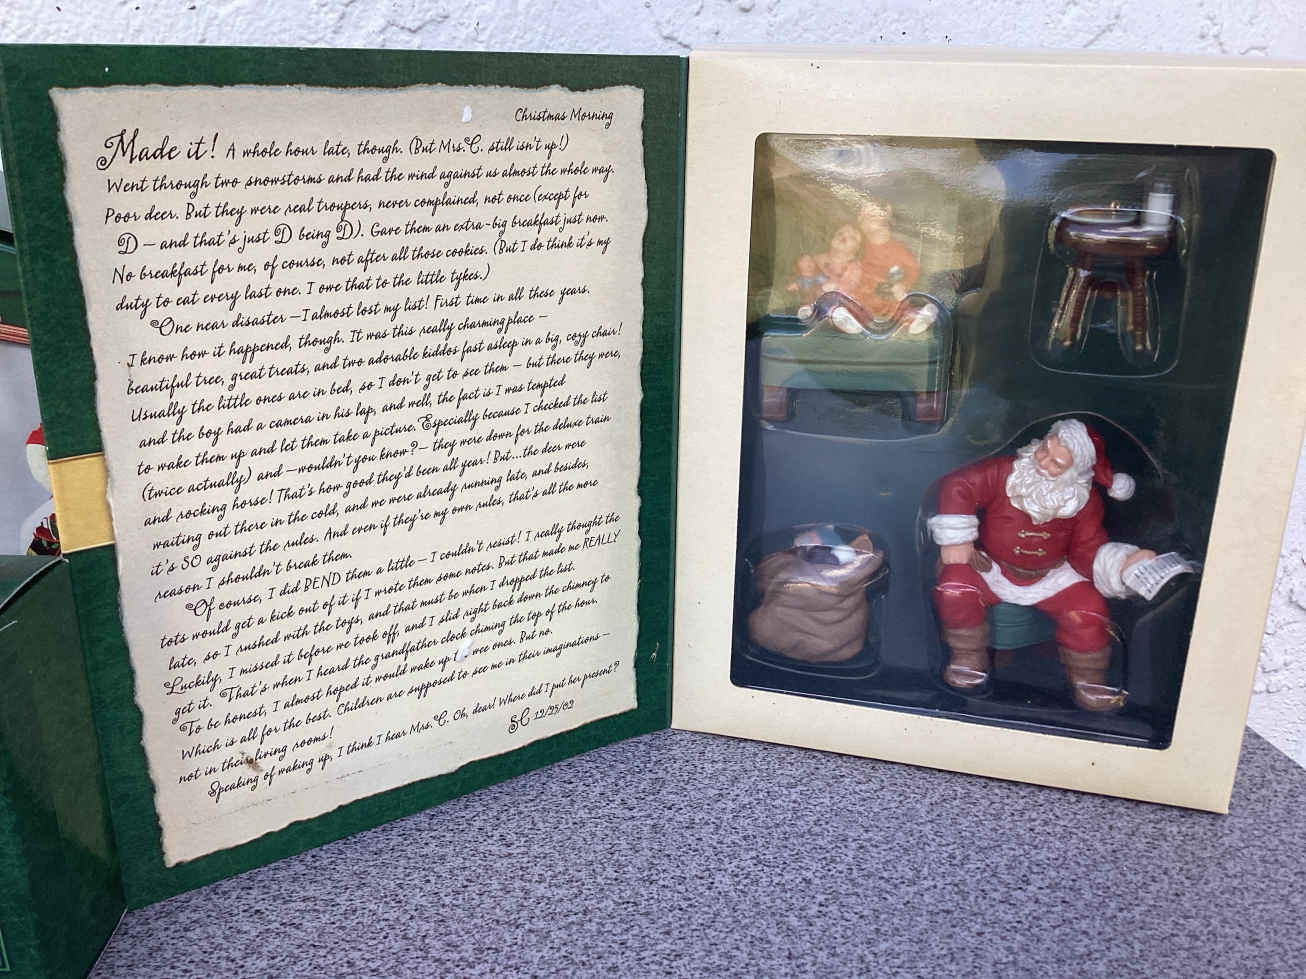 Christmas Morning
Made it! A whole hour late, though. (But Mrs. C. still isn't up!)
Went through two snowstorms and had the wind against us almost the whole way.
Poor deer. But they were real troupers, never complained, not once (except for
D – and that's just D being D). Gave them an extra-big breakfast just now.
No breakfast for me, of course, not after all those cookies. (But I do think it's my
duty to eat every last one. I owe that to the little tykes.)
One near disaster – I almost lost my list! First time in all these years.
I know how it happened, though. It was this really charming place –
beautiful tree, great treats, and two adorable kiddos fast asleep in a big, cozy chair!
Usually the little ones are in bed, so I don't get to see them – but there they were,
and the boy had a camera in his lap, and well, the fact is I was tempted
to wake them up and let them take a picture. Especially because I checked the list
(twice actually) and – wouldn't you know? – they were down for the deluxe train
and rocking horse! That's how good they'd been all year! But... the deer were
waiting out there in the cold, and we were already running late, and besides,
it's SO against the rules. And even if they're my own rules, that's all the more
reason I shouldn't break them.
Of course, I did BEND them a little – I couldn't resist! I really thought the
tots would get a kick out of it if I wrote them some notes. But that made me REALLY
late, so I rushed with the toys, and that must be when I dropped the list.
Luckily, I missed it before we took off, and I slid right back down the chimney to
get it. That's when I heard the grandfather clock chiming the top of the hour.
To be honest, I almost hoped it would wake up wee ones. But no.
Which is all for the best. Children are supposed to see me in their imaginations –
not in their living rooms!
Speaking of waking up, I think I hear Mrs. C. Oh, dear! Where did I put her present?
SC 12/25/02